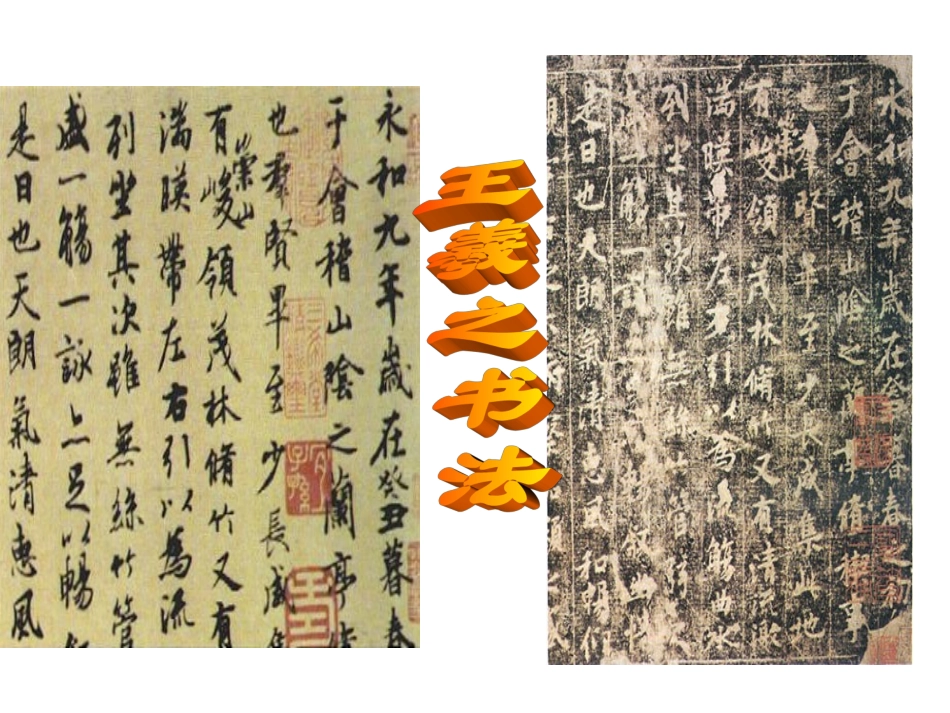 永和九年歲在癸丑暮春
于會稽山陰之蘭亭
也羣賢畢至少長咸
有崇山峻領茂林脩竹又有
湍暎帶左右引以為流
列坐其次雖無絲竹管
盛一觴一詠亦足以暢
是日也天朗氣清惠風
王羲之书法
永和九年歲在癸春之初
于會稽山陰之亭脩稧事
也羣賢畢至少長咸集此地
有崇山峻領茂林脩竹又有清流激
湍暎帶左右引以為流觴曲水
列坐其次雖無絲竹管
一觴一詠足以暢叙幽情
是日也天朗氣清惠風和暢仰